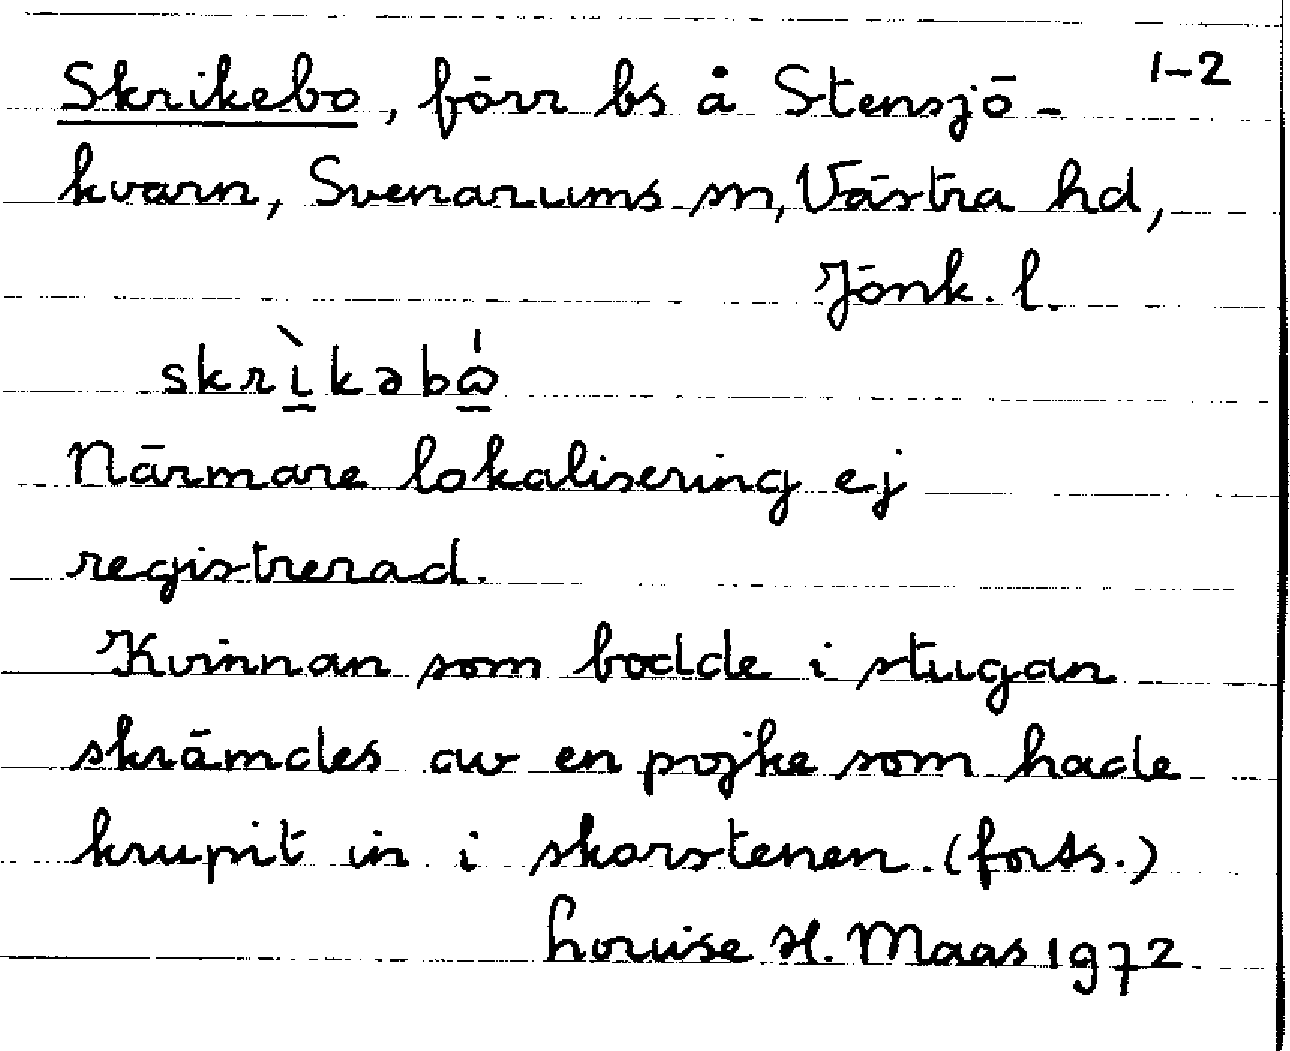 Skrikebo, förr bs å Stensjö- 1-2
kvarn, Svenarums sn, Västra hd,
Jönk. l.
skrì̱kəbɷ̱́
Närmare lokalisering ej
registrerad.
Kvinnan som bodde i stugan
skrämdes av en pojke som hade
krupit in i skorstenen. (forts.)
Louise H. Maas 1972